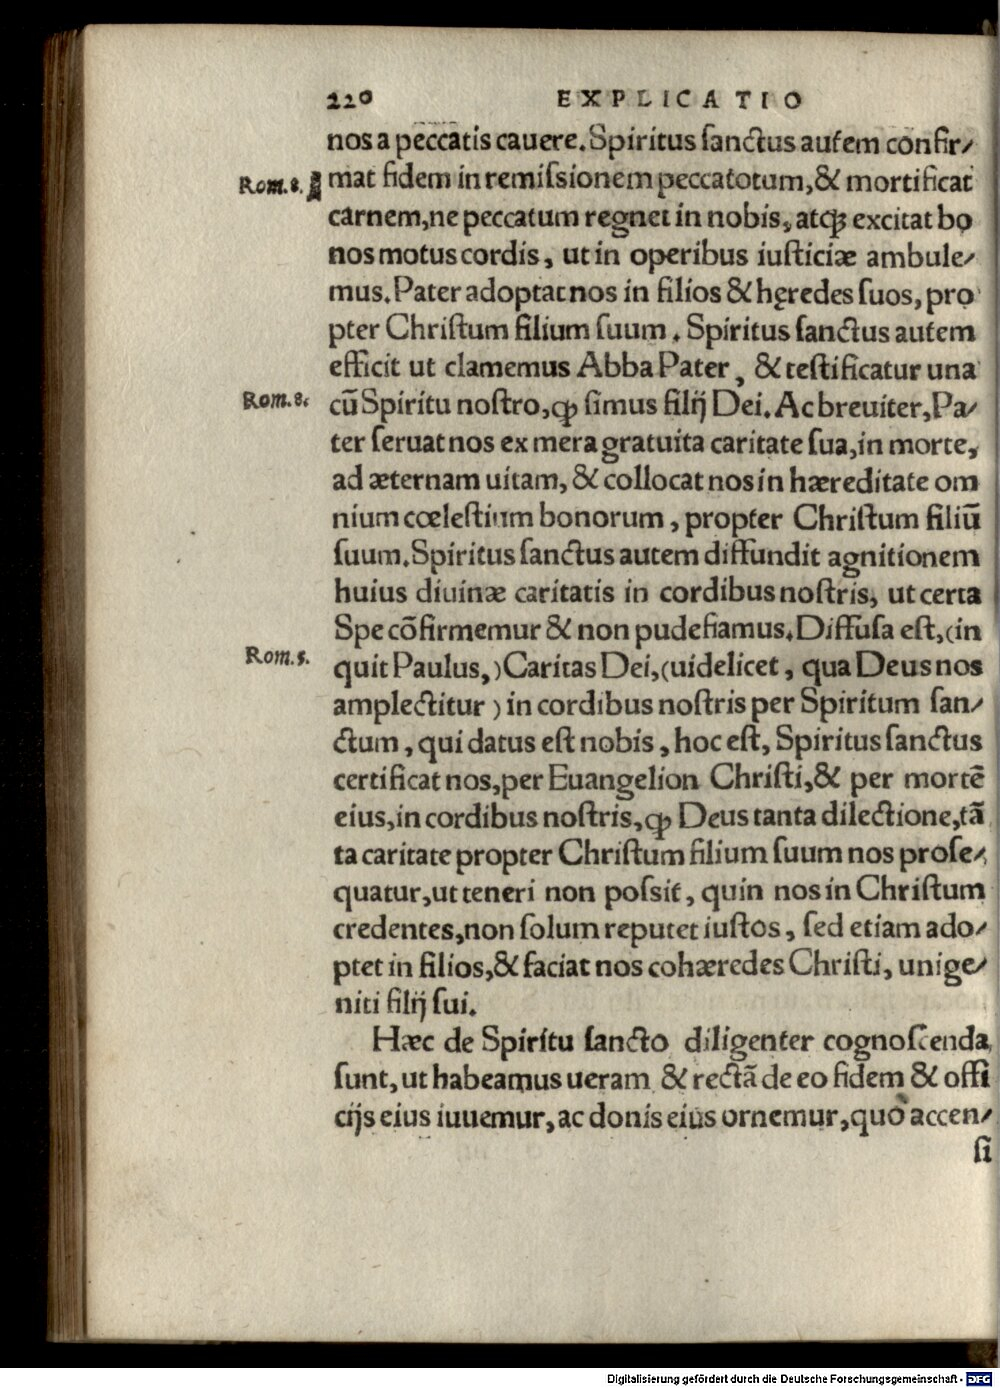 220 EXPLICATIO
nos a peccatis cauere. Spiritus sanctus autem confir/
Rom. 8. mat fidem in remissionem peccatotum, & mortificat
carnem, ne peccatum regnet in nobis, atqꝫ excitat bo
nos motus cordis, ut in operibus iusticiæ ambule/
mus. Pater adoptat nos in filios & hęredes suos, pro
pter Christum filium suum. Spiritus sanctus autem
efficit ut clamemus Abba Pater, & testificatur una
Rom. 8. cū Spiritu nostro, ꝙ simus filij Dei. Ac breuiter, Pa/
ter seruat nos ex mera gratuita caritate sua, in morte,
ad æternam uitam, & collocat nos in hæreditate om
nium cœlestium bonorum, propter Christum filiū
suum. Spiritus sanctus autem diffundit agnitionem
huius diuinæ caritatis in cordibus nostris, ut certa
Spe cōfirmemur & non pudefiamus. Diffusa est, (in
Rom. 5. quit Paulus,) Caritas Dei, (uidelicet, qua Deus nos
amplectitur) in cordibus nostris per Spiritum san/
ctum, qui datus est nobis, hoc est, Spiritus sanctus
certificat nos, per Euangelion Christi, & per mortē
eius, in cordibus nostris, ꝙ Deus tanta dilectione, tā
ta caritate propter Christum filium suum nos prose/
quatur, ut teneri non possit, quin nos in Christum
credentes, non solum reputet iustos, sed etiam ado/
ptet in filios, & faciat nos cohæredes Christi, unige/
niti filij sui.
Hæc de Spiritu sancto diligenter cognoscenda
sunt, ut habeamus ueram & rectā de eo fidem & offi
cijs eius iuuemur, ac donis eius ornemur, quò accen/
si
Digitalisierung gefördert durch die Deutsche Forschungsgemeinschaft - DFG